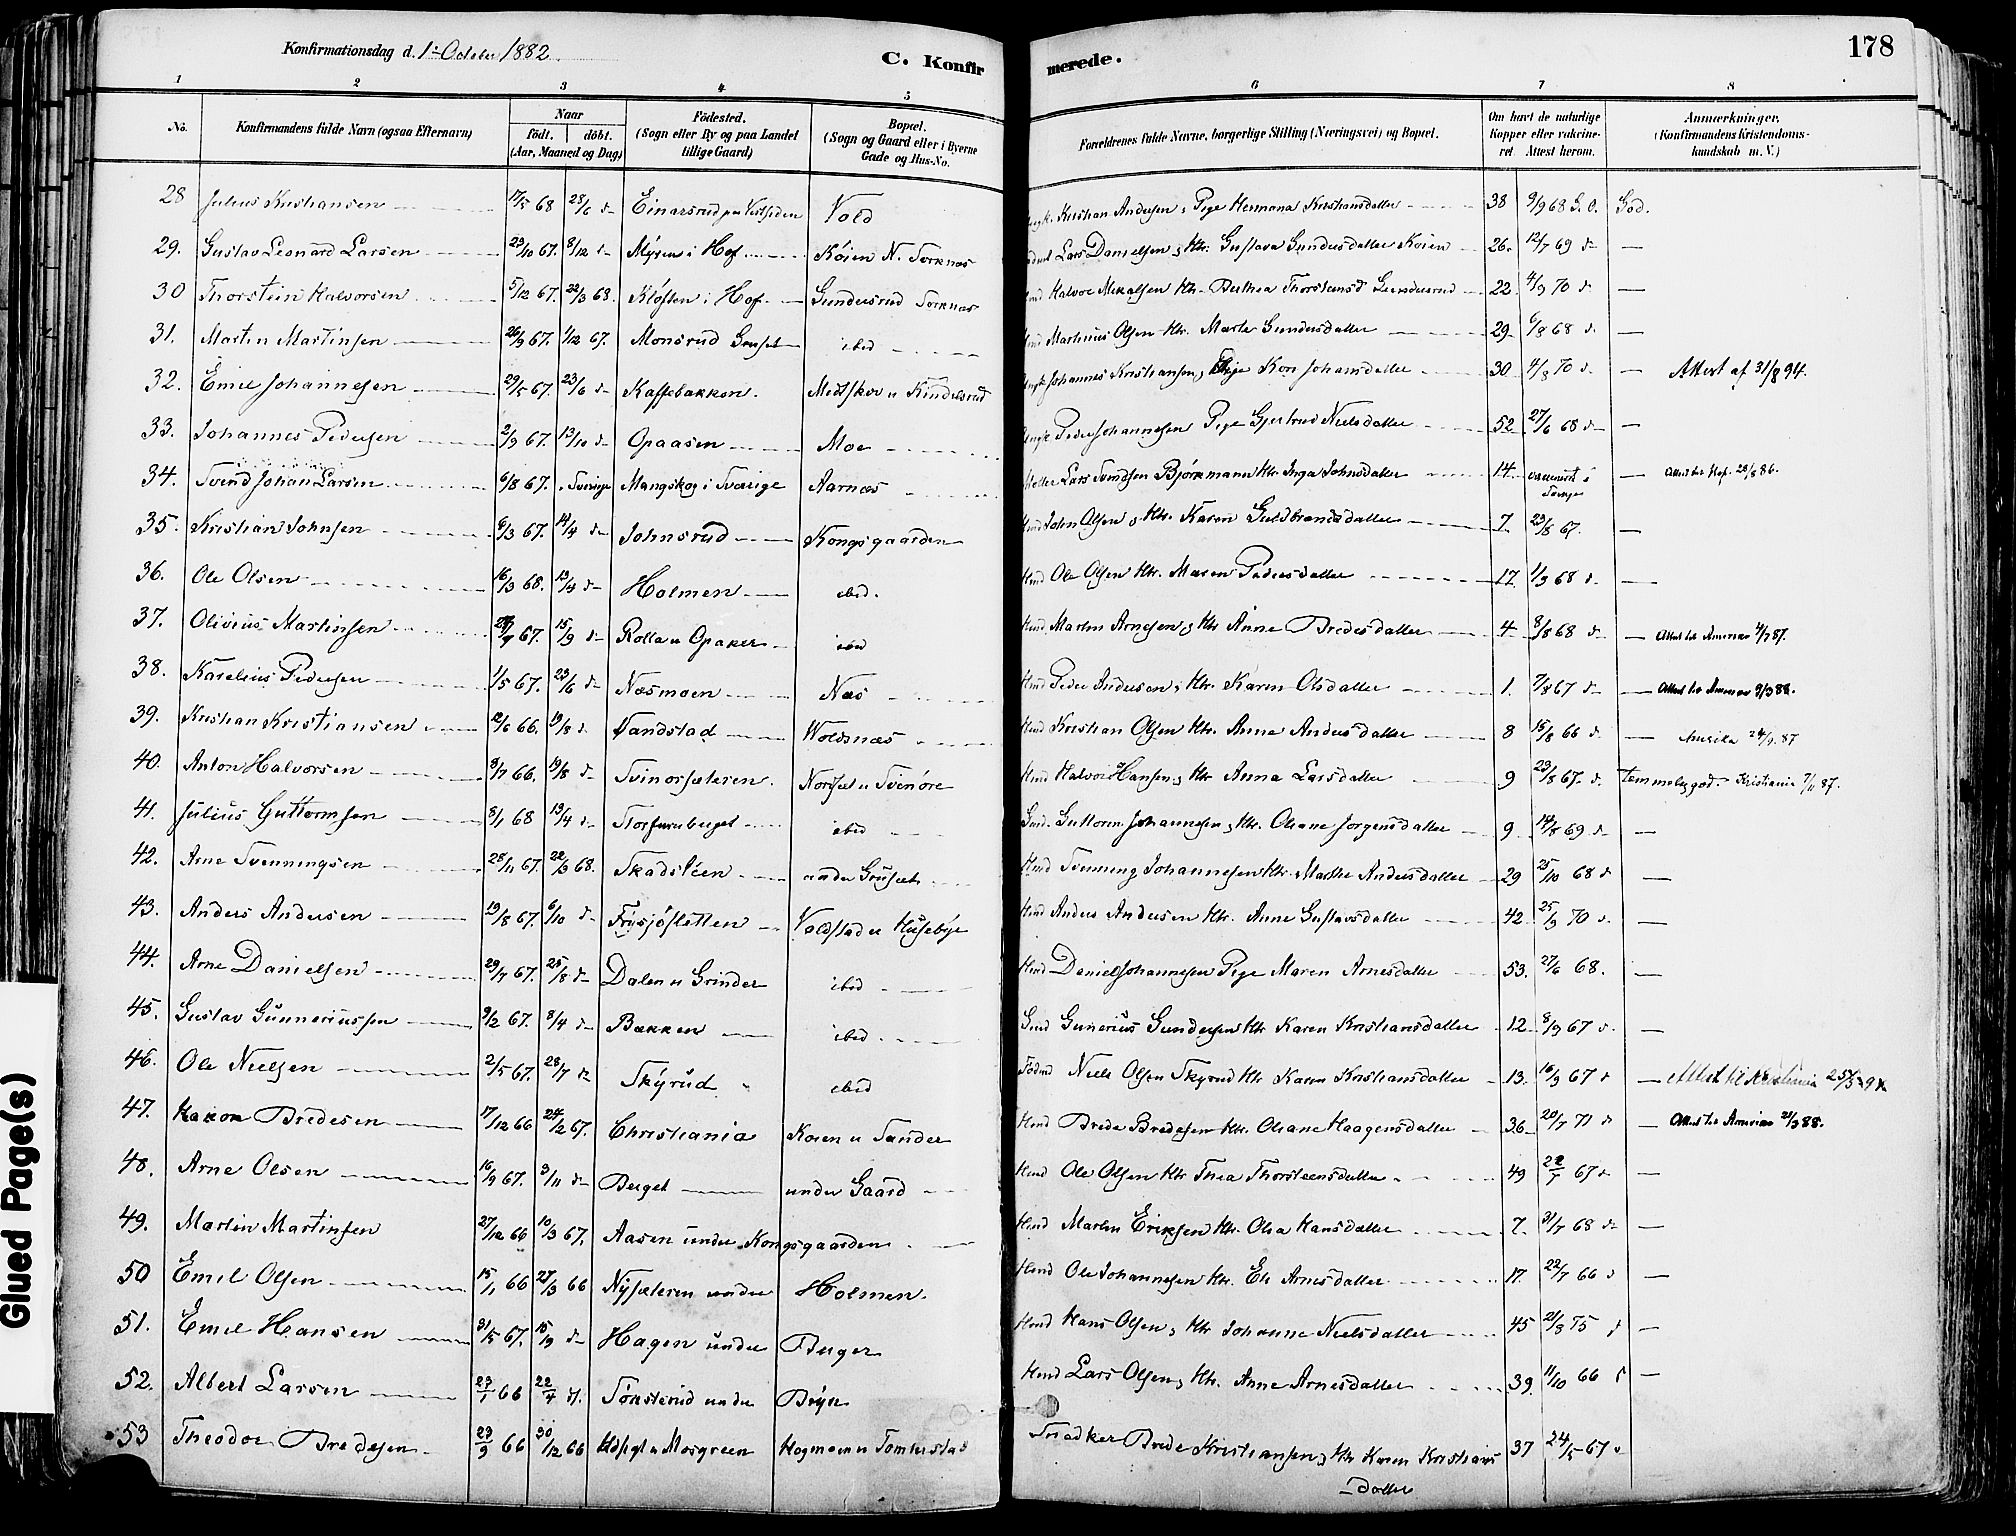 Konfirmationsdag d. 1ste October 1882.
C. Konfir
merede.
178
1 2 3 4 5 6 7 8
No. Konfirmandens fulde Navn (ogsaa Efternavn)
Naar födt. döbt. (Aar, Maaned og Dag)
Födested. (Sogn eller By og paa Landet tillige Gaard)
Bopæl. (Sogn og Gaard eller i Byerne Gade og Hus-No.
Forældrenes fulde Navne, borgerlige Stilling (Næringsvei) og Bopæl.
Om havt de naturlige Kopper eller vakcineret Attest herom.
Anmærkninger, (Konfirmandens Kristendomskundskab m. V.)
28 Julius Kristiansen 17/5 68 28/6 d. Einarsrud paa Vestsiden Vold Kristian Andersen, Pige Hermana Kristiansdatter 38 9/9 68 S. O. God.
29. Gustav Leonard Larsen 23/10 67. 8/12 d. Myren i Hof Köien N. Torknæs Lars Danielsen, Ktr. Gustava Gundersdatter Köien 26. 12/7 69 d. —
30 Thorstein Halvorsen 5/12 67. 22/3 68. Kløften i Hof Gundersrud Torknæs Halvor Mikalsen Ktr. Berthea Thorstensd Gundersrud 22 4/9 70 d. —
31. Martin Martinsen 26/9 67. 1/12 67. Monsrud Gruset ibid Martinius Olsen Ktr. Marte Gundersdatter 29 6/8 68 d. —
32. Emil Johannesen 29/5 67. 23/6 d. Kaffebakken. Medskov u Kindelsrud Johannes Kristiansen, Pige Kari Johansdatter 30 4/8 70 d. — Attest af 31/8 94.
33. Johannes Pedersen 2/9 67. 13/10 d. Opaasen Moe Peder Johannesen Pige Gjertrud Nielsdatter 52 27/6 68 d. —
34. Svend Johan Larsen 6/8 67. Sverige Mangskog i Sverige Aarnæs Lars Svendsen Bjørkmann Ktr. Inga Johnsdatter 14. — Attest til Hof. 28/8 86.
35. Kristian Johnsen 6/3 67. 14/4 d. Johnsrud Kongsgaarden John Olsen, Ktr. Karen Guldbrandsdatter 7. 23/8 67. —
36. Ole Olsen 16/3 68. 13/4 d. Holmen ibid. Hmd Ole Olsen Ktr. Maren Pedersdatter 17 1/9 68 d. —
37. Olivius Martinsen 67. 15/9 d. Rolla u Opaker ibid Hmd Martin Arnesen, Ktr Anne Bredesdatter 4 8/8 68 d. — Attest til Amerika 87.
38. Karelius Pedersen 1/5 67. 23/6 d. Næsmoen Næs Hmd Peder Andersen, Ktr. Karen Olsdatter 1. 7/8 67 d. — Attest til Amerika 9/3 88.
39. Kristian Kristiansen 12/6 66. 19/8 d. Vandstad Woldsnæs Hmd Kristian Olsen Ktr. Anne Andersdatter 8 15/8 66 d. — Amerika 87
40. Anton Halvorsen 8/7 66. 19/8 d. Svinorsæteren. Norset u Svenöre Hmd Halvor Hansen, Ktr Anna Larsdatter 9 23/8 67. d. temmelig god. Kristiania 7/11 87.
41. Julius Guttormsen 8/1 68 13/4 d. Storfuruberget ibid Guttorm Johannesen, Ktr. Oliane Jorgensdatter 9 14/8 69 d. —
42. Arne Svenningsen 28/11 67. 22/3 68. Skadsleen under Gruset Hmd Svenning Johannesen Ktr. Marthe Andersdatter 29 25/10 68 d —
43. Anders Andersen 19/8 67. 6/10 d. Frysjösletten Voldstad u Huseby Hmd Anders Andersen Ktr. Anne Gustavsdatter 42 25/9 70 d. —
44. Arne Danielsen 29/7 67. 25/8 d. Dalen u Grinder ibid Hmd Daniel Johannesen Pige Maren Arnesdatter 53. 27/6 68. —
45. Gustav Gunneriussen 9/2 67. 8/4 d. Bakken ibid. Gunerius Gundersen Ktr Karen Kristiansdatter 12 8/9 67 d. —
46. Ole Nielsen 2/5 67. 28/7 d. Skyrud ibid Niels Olsen Skyrud Ktr Karen Kristiansdatter 13. 16/9 67 d — Attest til Kristiania
47. Hakon Bredesen 17/12 66 24/2 67. Christiania Koien u Sander Hmd Brede Bredesen Ktr. Oliane Haagensdatter 36 20/7 71 d — Attest til Amerika 21/3 88.
48. Arne Olsen 16/9 67. 3/11 d. Berget under Gaard Hmd Ole Olsen Ktr Thea Thorsteensdatter 49 22/7 67 d —
49. Martin Martinsen 27/12 66 10/3 67. Aasen under Kongsgaarden Hmd Martin Eriksen Ktr. Olia Hansdatter 7. 31/7 68 d —
50 Emil Olsen 15/1 66 25/3 66 Nysæteren under Holmen. Hmd Ole Johannesen Ktr. Eli Arnesdatter 17. 22/7 66 d —
51. Emil Hansen 31/5 67. 15/9 d. Hagen under Berger Hmd Hans Olsen, Ktr Johanne Nielsdatter 45 21/8 75 d —
52. Albert Larsen 23/1 66 22/4 d. Tönsterud under Bryn Hmd Lars Olsen, Ktr. Anne Arnesdatter 39. 11/10 66 d —
53 Theodor Bredesen. 23/9 66 30/12 66 Mosgreen Hogmoen u Tomterstad Snedker Brede Kristiansen, Ktr Karen Kristians 37 24/5 67 d
datter
Glued Page(s)